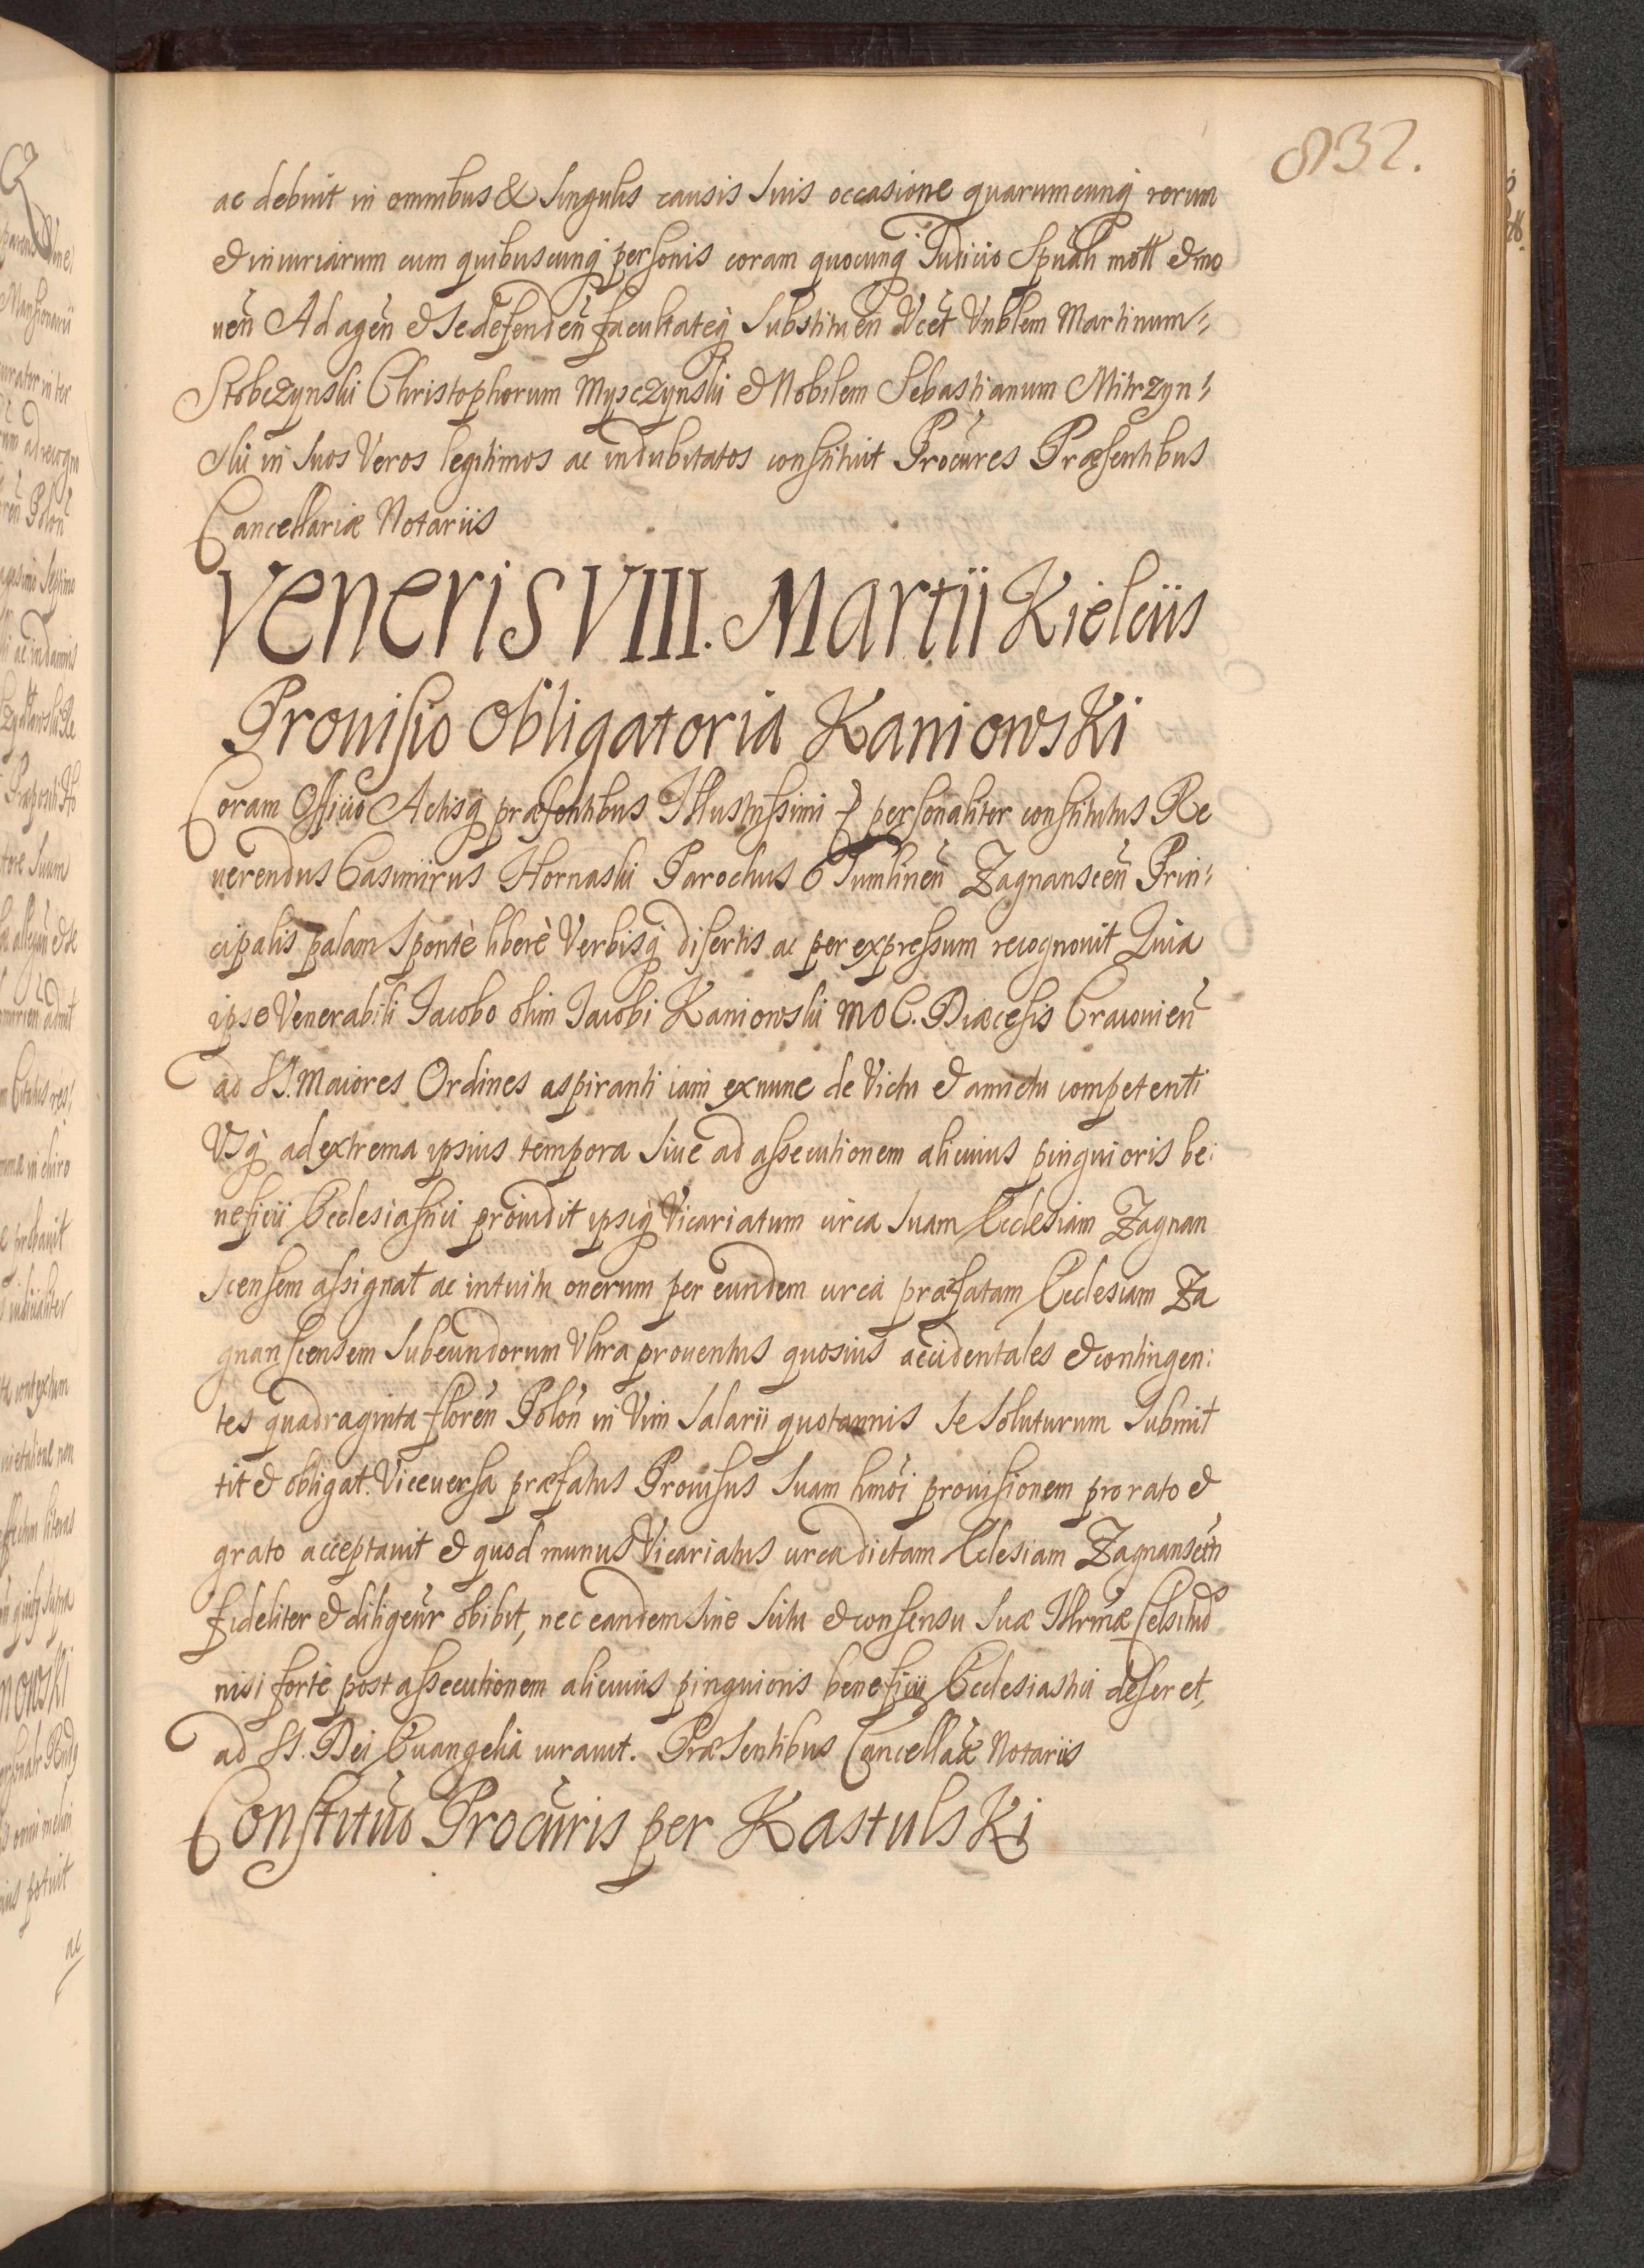 832.
ac debuit in omnibus & Singulis causis Suis occasione quarumcunq rerum
& iniuriarum cum quibuscunq personis coram quocunq Iudicio Spüali mott & mo
ueñ Ad ageñ & Se defendeñ facultateq Substitueñ Vcet Vnblem Martinum
Stobczynski Christophorum Myszczynski & Nobilem Sebastianum Mitrzyn
ski in Suos Veros legitimos ac indubitatos constituit Procures Præsentibus
Cancellariæ Notariis
Veneris VIII. Martii Kielciis
Prouisio Obligatoria Kaniowski
Coram Officio Actisq præsentibus Illustrissimi personaliter constitutus Re
uerendus Casimirus Hornaski Parochus Tumlineñ Zagnansceñ Prin
cipalis palam Spontè liberè Verbisq disertis ac per expressum recognouit Quia
ipse Venerabili Iacobo olim Iacobi Kaniowski MOC. Diæcesis Cracouieñ
ad SS. Maiores Ordines aspiranti iam exnunc de Victu & amictu competenti
Vsq ad extrema ipsius tempora Siue ad assecutionem alicuius pinguioris be:
neficii Ecclesiastici prouidit ipsiq Vicariatum circa Suam Ecclesiam Zagnan
scensem assignat ac intuitu onerum per eundem circa præfatam Ecclesiam Za
gnanscensem Subeundorum Vltra prouentus quosuis accidentales & contingen:
tes quadraginta floreñ Poloñ in Vim Salarii quotannis Se Soluturum Submit
tit & obligat. Viceuersa præfatus Prouisus Suam hmoi prouisionem pro rato &
grato acceptauit & quod munus Vicariatus circa dictam Eclesiam Zagnansceñ
fideliter & diligeñr obibit, nec eandem Sine Scitu & consensu Suæ Illrmæ Celsitud
nisi fortè post assecutionem alicuius pinguioris beneficii Ecclesiastici deseret,
ad SS. Dei Euangelia iurauit. Præsentibus Cancellaæ Notariis
Constitutio Procuris per Kastulski